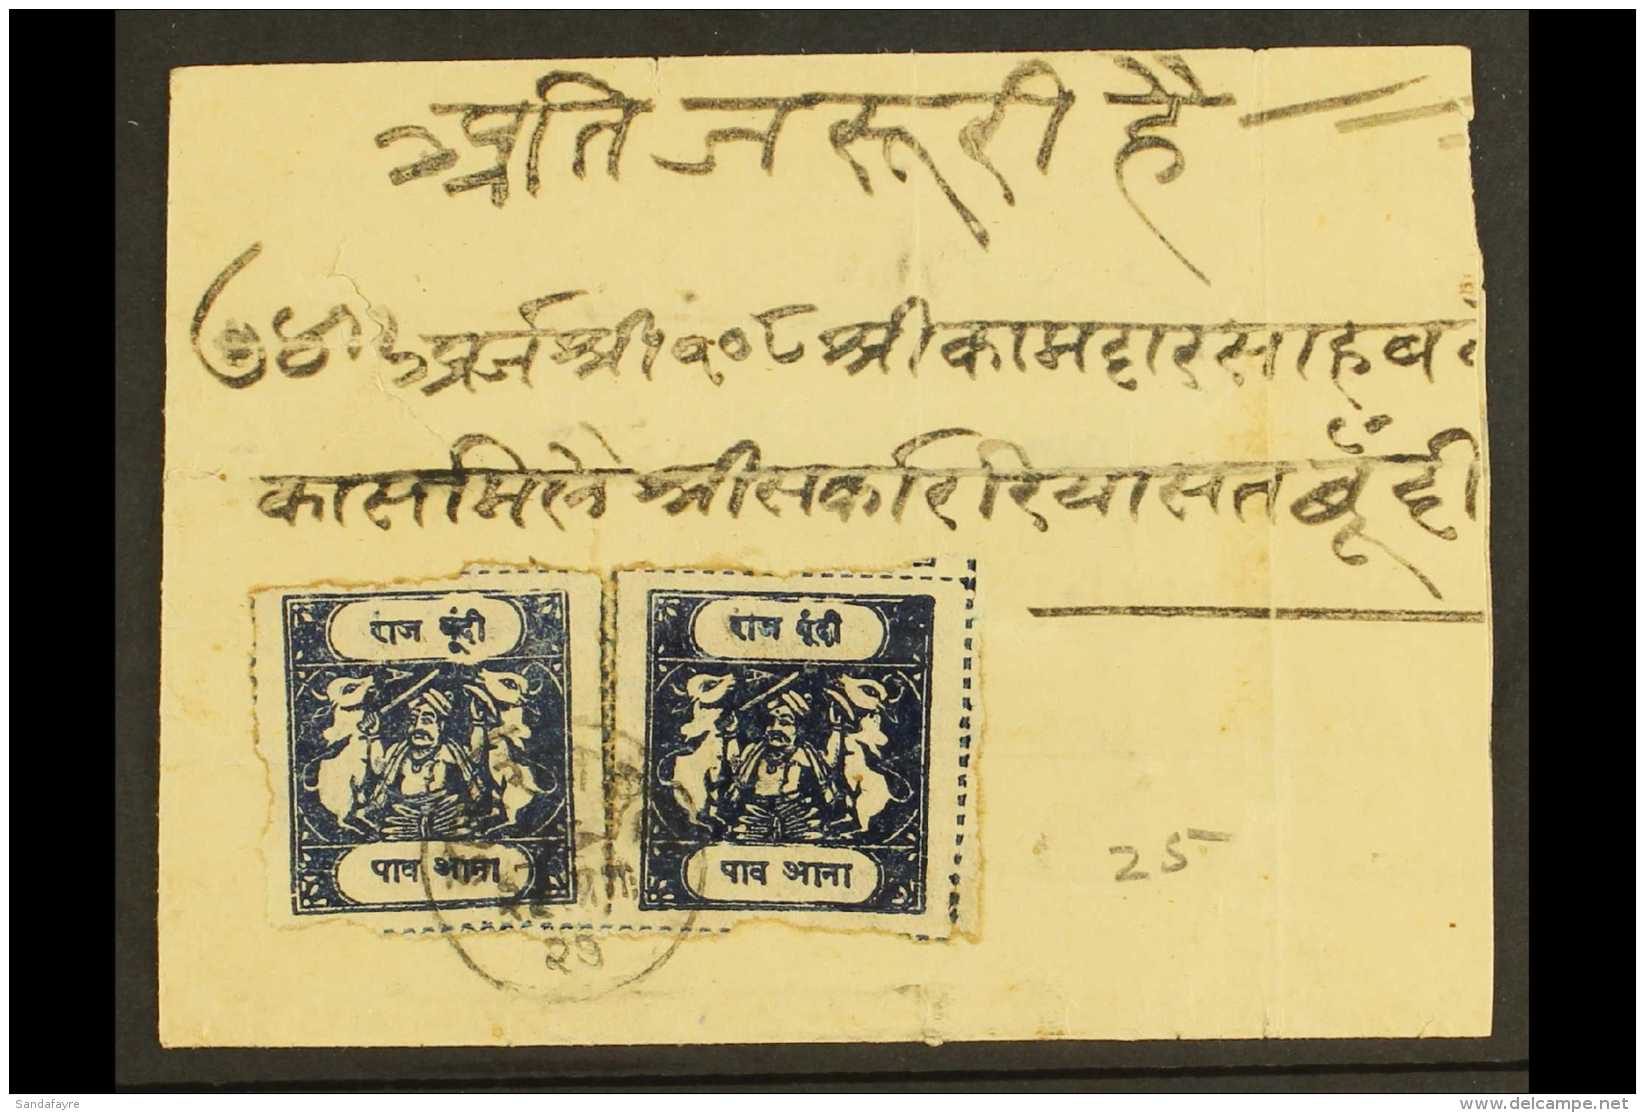 अति जरूरी है
अर्ज श्री १०८ श्री कामदार साहब
का सामिल श्री सर्कार रियासत बूंदी
राज बूंदी
राज बूंदी
पाव आना
पाव आना
25
२७
Sandafayre
www.delcampe.net